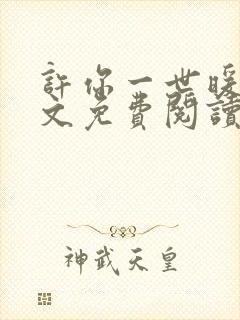 許你一世暖
文免費閱讀
神武天皇